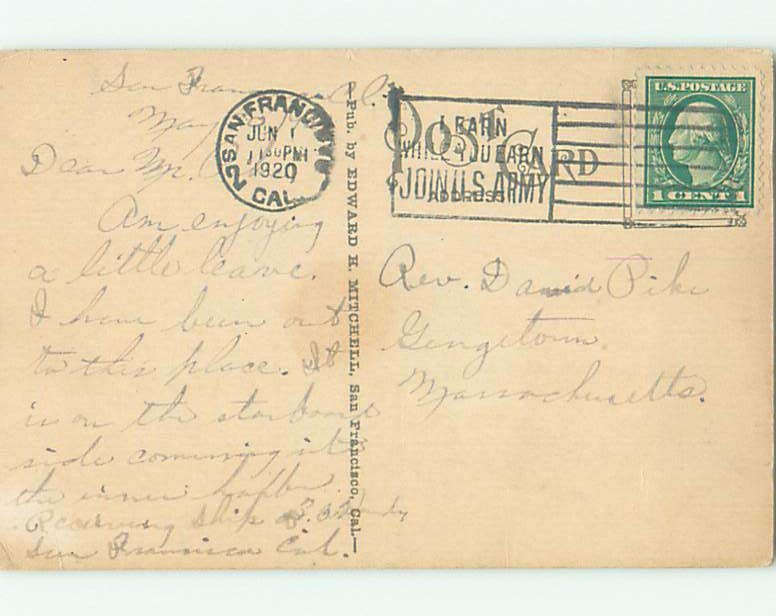 San Francisco Cal.
May
Dear Mr.
Am enjoying
a little leave.
I have been out
to this place. It
is on the starboard
side comming into
the inner habber.
Receiving Ship
San Francisco Cal.
Pub. by EDWARD H. MITCHELL, San Francisco, Cal.—
SAN FRANCISCO
JUN 1
11 30 PM
1920
2 CAL.
LEARN
WHILE YOU EARN
JOIN U.S. ARMY
Post Card
ADDRESS
U.S. POSTAGE
1 CENT 1
Rev. David Pike
Georgetown
Massachusetts.